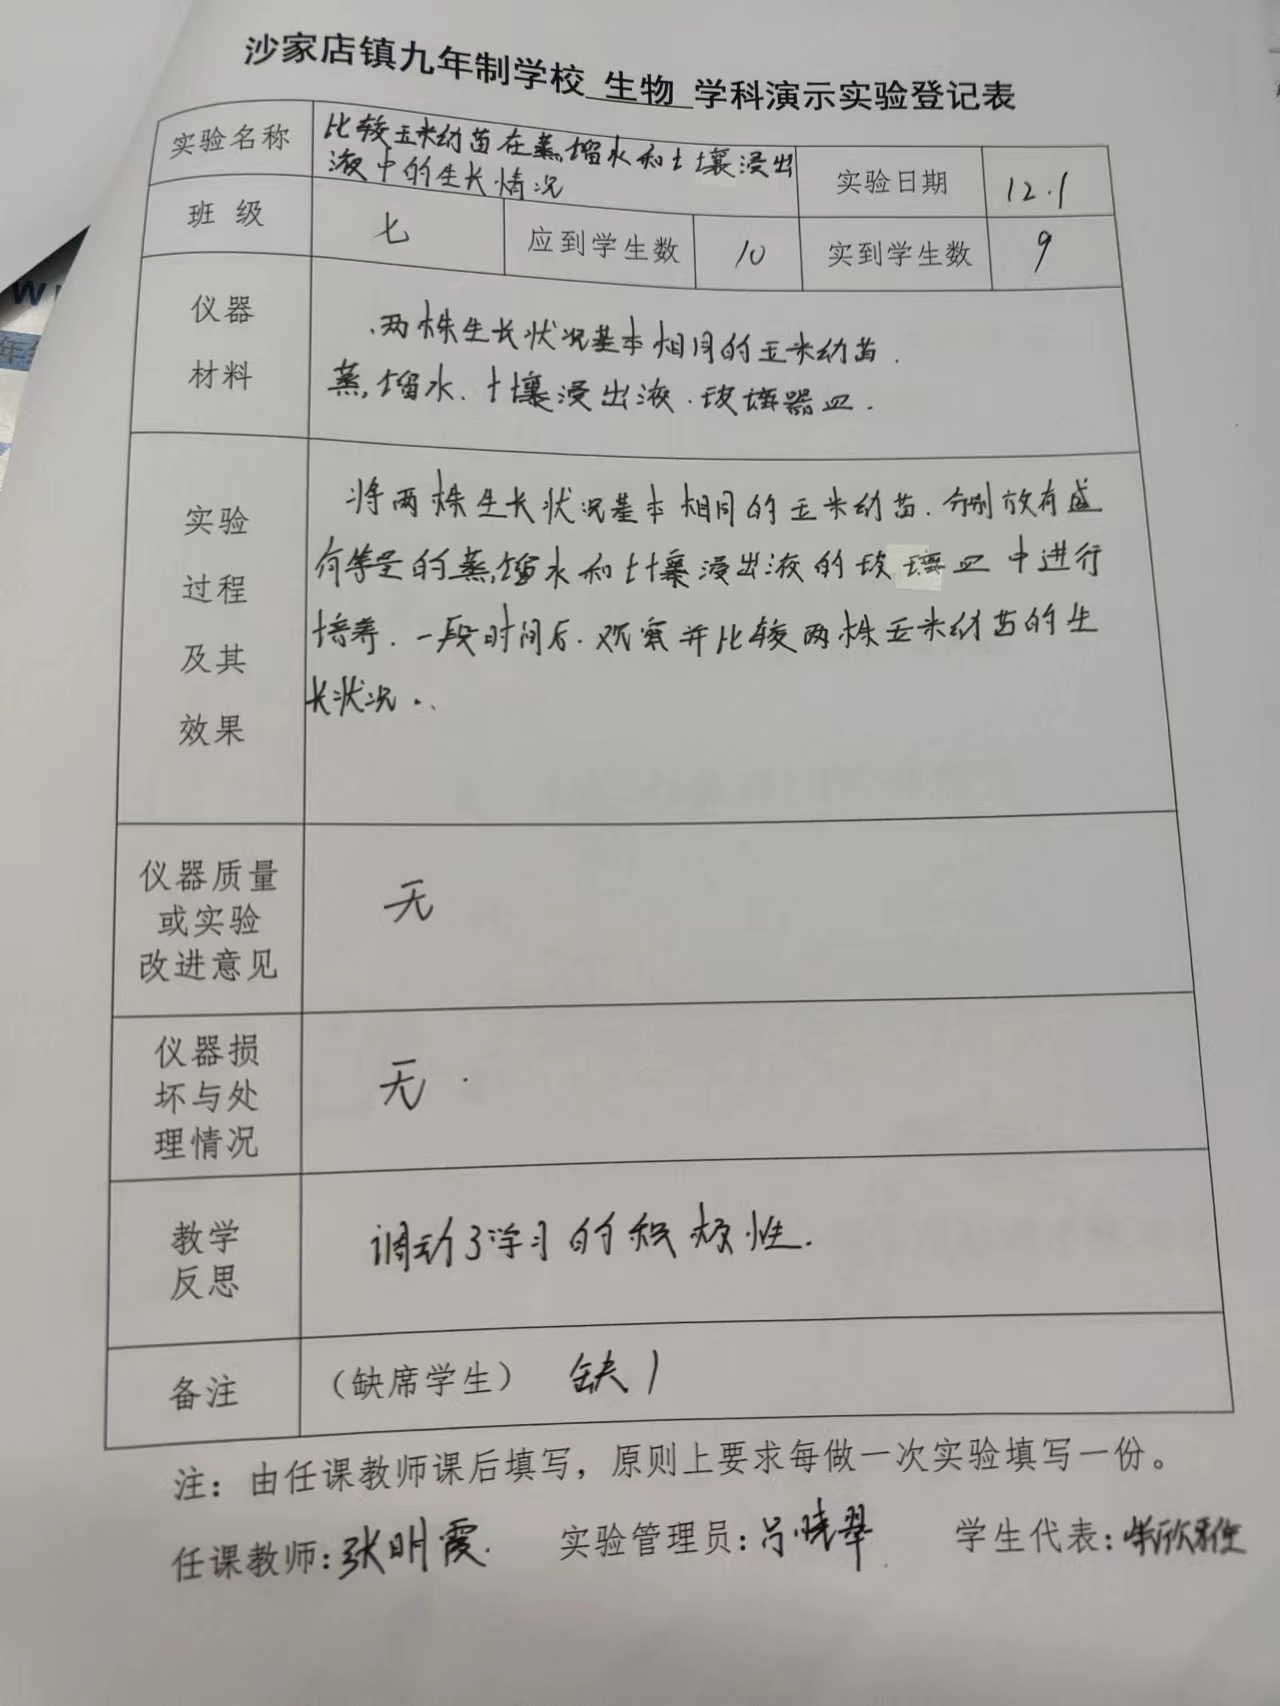 沙家店镇九年制学校 生物 学科演示实验登记表
实验名称 比较玉米幼苗在蒸馏水和土壤浸出
液中的生长情况
实验日期 12.1
班 级 七 应到学生数 10 实到学生数 9
仪器
材料
两株生长状况基本相同的玉米幼苗.
蒸馏水.土壤浸出液.玻璃器皿.
实验
过程
及其
效果
将两株生长状况基本相同的玉米幼苗.分别放有盛
有等量的蒸馏水和土壤浸出液的玻璃皿中进行
培养.一段时间后.观察并比较两株玉米幼苗的生
长状况.
仪器质量
或实验
改进意见
无
仪器损
坏与处
理情况
无
教学
反思
调动了学习的积极性.
备注 (缺席学生) 缺1
注：由任课教师课后填写，原则上要求每做一次实验填写一份。
任课教师:张明霞 实验管理员:吕晓翠 学生代表: